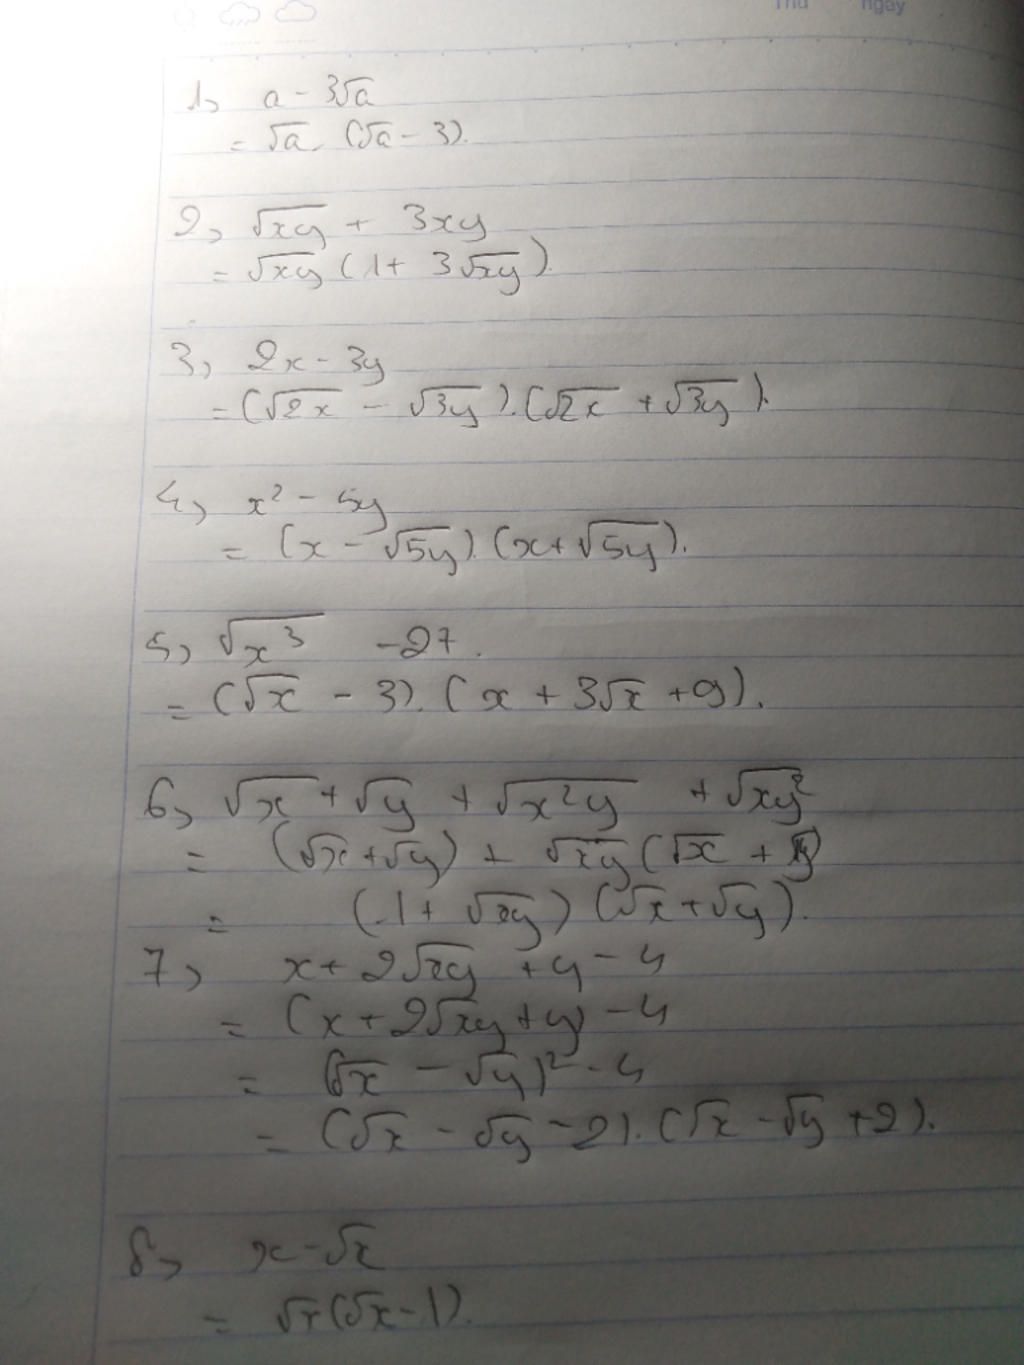 Thứ ngày
1, a - 3√a
= √a. (√a - 3).
2, √xy + 3xy
= √xy (1 + 3√xy).
3, 2x - 3y
= (√2x - √3y).(√2x + √3y).
4, x² - 5y
= (x - √5y).(x + √5y).
5, √x³ - 27.
= (√x - 3).(x + 3√x + 9).
6, √x + √y + √x²y + √xy²
= (√x + √y) + √xy (√x + √y)
= (1 + √xy) (√x + √y).
7, x + 2√xy + y - 4
= (x + 2√xy + y) - 4
= (√x - √y)² - 4
= (√x - √y - 2).(√x - √y + 2).
8, x - √x
= √x (√x - 1).